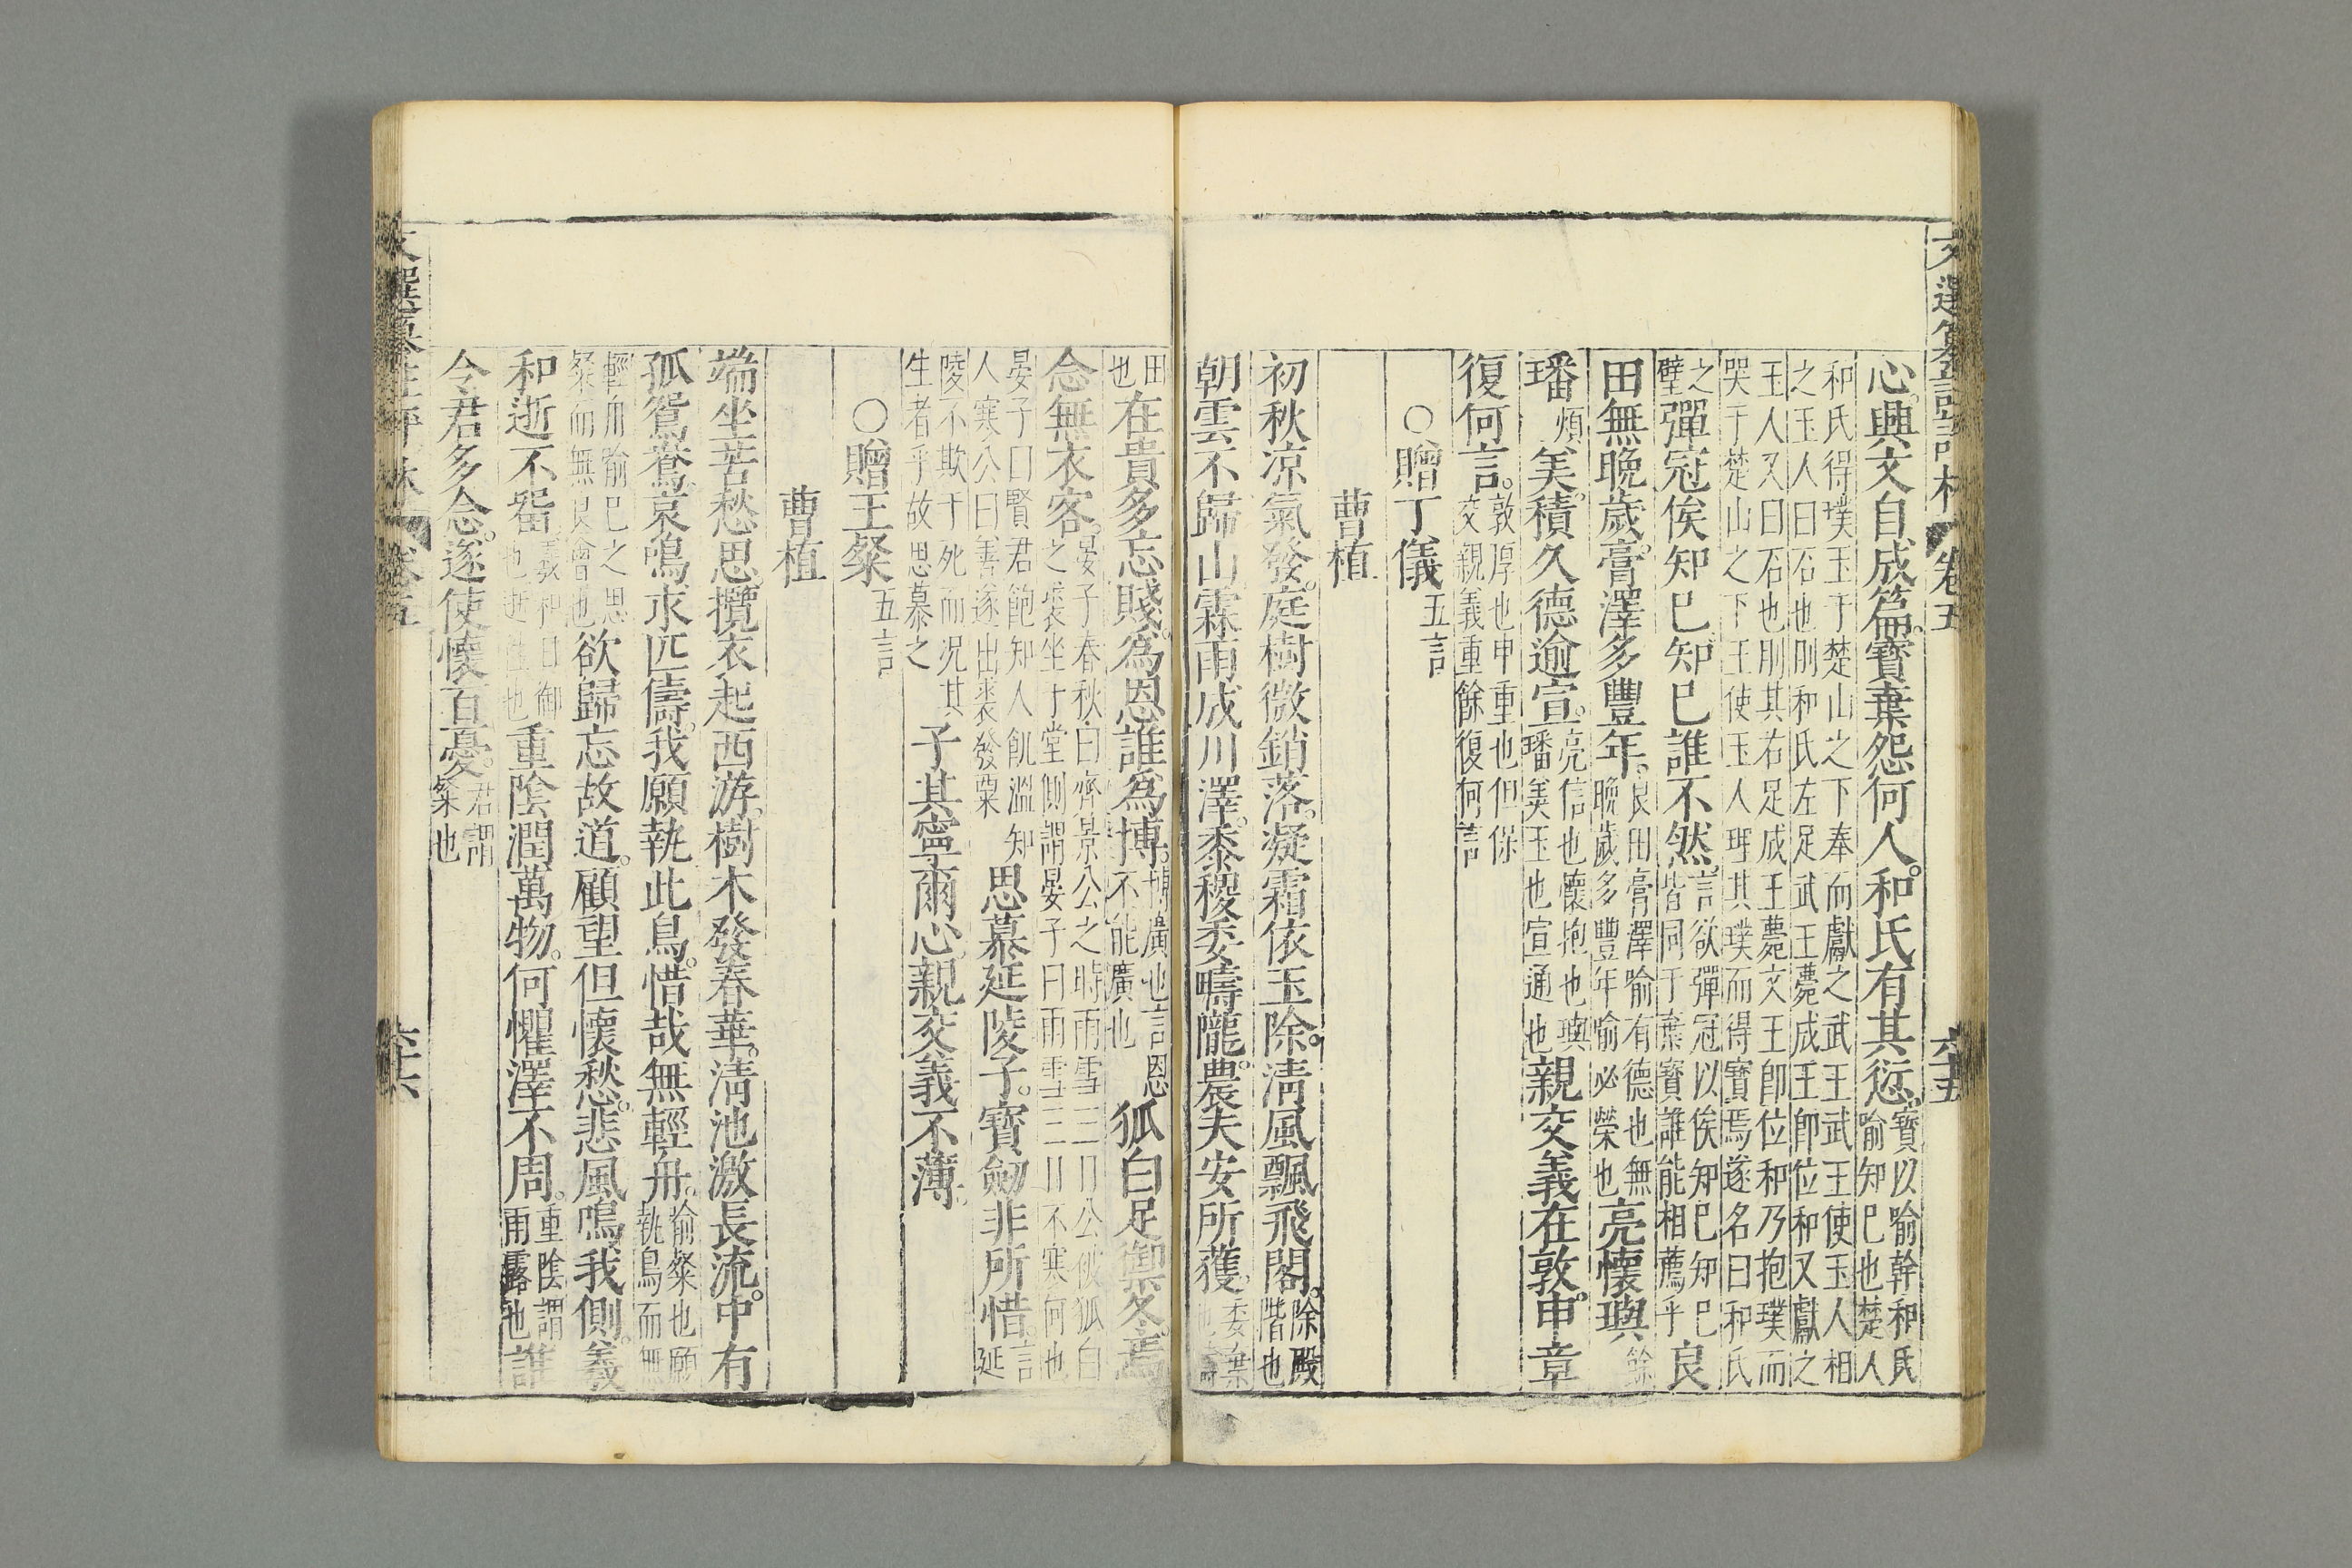 心。興文自成篇。寶棄怨何人。和氏有其愆。寶以喻幹和氏喻知己也楚人
和氏得璞玉于楚山之下奉而獻之武王武王使玉人相之玉人曰石也刖和氏左足武王薨成王即位和又獻之
玉人又曰石也刖其右足成王薨文王即位和乃抱璞而哭于楚山之下王使玉人理其璞而得寶焉遂名曰和氏
之璧彈冠俟知己。知己誰不然。言欲彈冠以俟知己知己皆同于棄寶誰能相薦乎良
田無晚歲。膏澤多豐年。良田膏澤喻有德也無晚歲多豐年喻必榮也亮懷璵餘
璠煩美。積久德逾宣。亮信也懷抱也璵璠美玉也宣通也親交義在敦。申章
復何言。敦厚也申重也但保交親義重餘復何言
○贈丁儀五言
曹植
初秋涼氣發。庭樹微銷落。凝霜依玉除。清風飄飛閣。除殿階也
朝雲不歸山。霖雨成川澤。黍稷委疇隴。農夫安所獲。委棄也疇
田也在貴多忘賤。為恩誰為博。博廣也言恩不能廣也狐白足禦冬。焉
念無衣客。晏子春秋曰齊景公之時雨雪三日公被狐白之裘坐于堂側謂晏子曰雨雪三日不寒何也
晏子曰賢君飽知人飢溫知人寒公曰善遂出裘發粟思慕延陵子。寶劒非所惜。言延
陵不欺于死而况其生者乎故思慕之子其寧爾心。親交義不薄。
○贈王粲五言
曹植
端坐苦愁思。攬衣起西游。樹木發春華。清池激長流。中有
孤鴛鴦。哀鳴求匹儔。我願執此鳥。惜哉無輕舟。喻粲也願執鳥而無
輕舟喻己之思粲而無良會也欲歸忘故道。顧望但懷愁。悲風鳴我側。羲
和逝不留。羲和日御也逝往也重陰潤萬物。何懼澤不周。重陰謂雨露也誰
令君多念。遂使懷百憂。君謂粲也
文選纂註評林
卷五
六十五
卷五
六十六